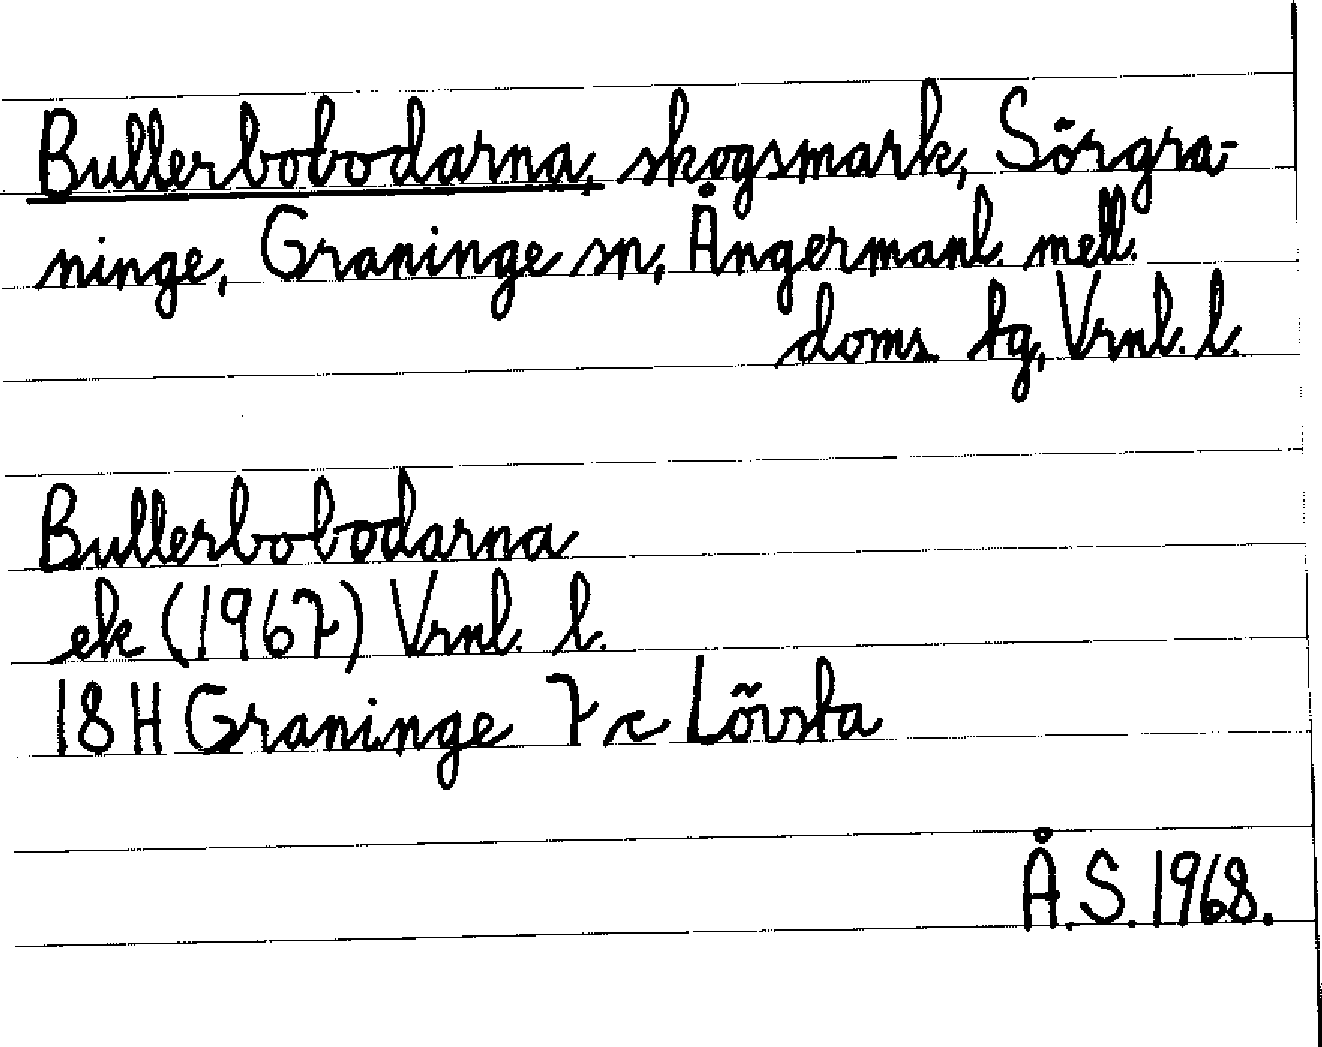 Bullerbobodarna, skogsmark, Sörgra-
ninge, Graninge sn, Ångermanl. mell.
doms. tg, Vrnl. l.
Bullerbobodarna
ek (1967) Vrnl. l.
18 H Graninge 7 c Lövsta
Å.S. 1968.